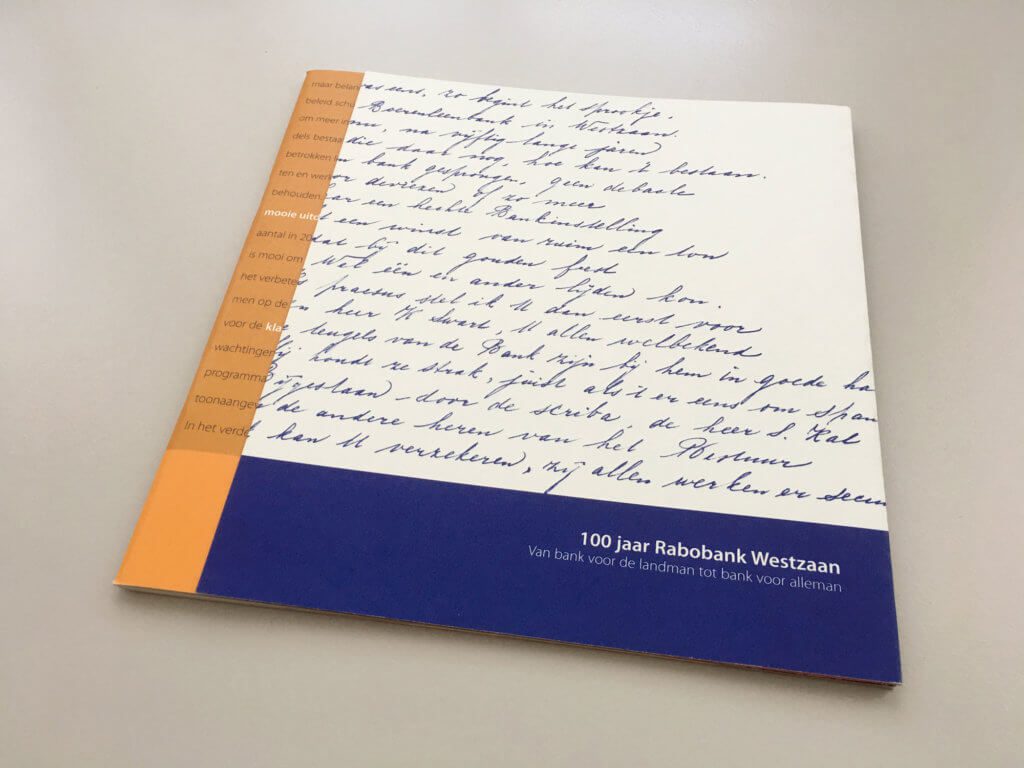 maar belan
beleid schu
om meer in
dels bestaa
betrokken
ten en werk
behouden.
mooie uitd
aantal in 20
is mooi om
het verbete
men op de
voor de kla
wachtingen
programma
toonaangev
In het verde
as eens, zo begint het sprookje.
Boerenleenbank in Westzaan.
nu, na vijftig lange jaren
die daar nog, hoe kan 't bestaan.
n bank gesprongen, geen debacle
or deviezen of zo meer
ar een hechte Bankinstelling
t een winst van ruim een ton
dat bij dit gouden feest
Wel één en ander lijden kon.
s praeses stel ik U dan eerst voor
n heer K Swart, U allen welbekend
e teugels van de Bank zijn bij hem in goede ha
ij houdt ze strak, juist als 't er eens om span
Bijgestaan door de scriba, de heer S. Kal
de andere heren van het Bestuur
k kan U verzekeren, zij allen werken er
100 jaar Rabobank Westzaan
Van bank voor de landman tot bank voor alleman